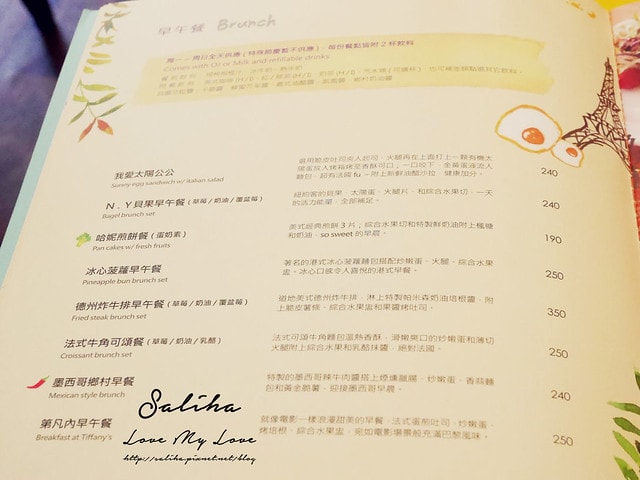 早午餐 Brunch
Comes with OJ or Milk and refillable drinks
我愛太陽公公
Sunny egg sandwich w/ italian salad
240
N.Y貝果早午餐 (草莓/奶油/覆盆莓)
Bagel brunch set
紐約客的貝果、太陽蛋、火腿片、和綜合水果切,一天
的活力能量,全部補足。
240
哈妮煎餅餐 (蛋奶素)
Pan cakes w/ fresh fruits
美式經典煎餅3片;綜合水果切和特製鮮奶油附上楓糖
和奶油,so sweet的早晨。
190
冰心菠蘿早午餐
Pineapple bun brunch set
著名的港式冰心菠蘿麵包搭配炒嫩蛋、火腿、綜合水果
盅。冰心口感令人喜悅的港式早餐。
250
德州炸牛排早午餐 (草莓/奶油/覆盆莓)
Fried steak brunch set
道地美式德州炸牛排,淋上特製帕米森奶油培根醬,附
上脆皮薯條、綜合水果盅和果醬烤吐司。
350
法式牛角可頌餐 (草莓/奶油/乳酪)
Croissant brunch set
法式可頌牛角麵包溫熱香酥,滑嫩爽口的炒嫩蛋和薄切
火腿附上綜合水果和乳酪抹醬,絕對法國。
250
墨西哥鄉村早餐
Mexican style brunch
特製的墨西哥辣牛肉醬搭上煙燻臘腸、炒嫩蛋、香蒜麵
包和黃金脆薯,迎接墨西哥早晨。
240
第凡內早午餐
Breakfast at Tiffany's
就像電影一樣浪漫甜美的早餐,法式蛋煎吐司、炒嫩蛋、
烤培根、綜合水果盅,宛如電影場景般充滿巴黎風味。
250
Saliha
Love My Love
http://saliha.pixnet.net/blog